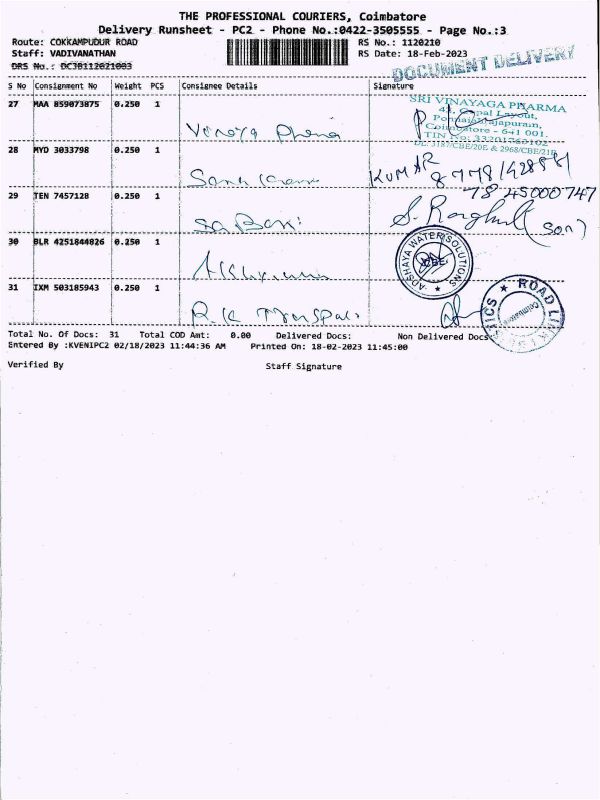 THE PROFESSIONAL COURIERS, Coimbatore
Delivery Runsheet - PC2 - Phone No.:0422-3505555 - Page No.:3
Route: COKKAMPUDUR ROAD RS No.: 1120210
Staff: VADIVANATHAN RS Date: 18-Feb-2023
DRS No.: DC3B112021003
DOCUMENT DELIVERY
S No Consignment No Weight PCS Consignee Details Signature
27 MAA 859073875 0.250 1
SRI VINAYAGA PHARMA
Layout,
Coimbatore - 641 001.
TIN No: 33201562102
DL: 3187/CBE/20E & 2968/CBE/21E
28 MYD 3033798 0.250 1
KUMAR
29 TEN 7457128 0.250 1
78 45000747
(son)
30 BLR 4251844826 0.250 1
ADSHAYA WATER SOLUTIONS
CBE
31 IXM 503185943 0.250 1
R.K
ROAD LINK
Total No. Of Docs: 31 Total COD Amt: 0.00 Delivered Docs: Non Delivered Docs
Entered By :KVENIPC2 02/18/2023 11:44:36 AM Printed On: 18-02-2023 11:45:00
Verified By Staff Signature